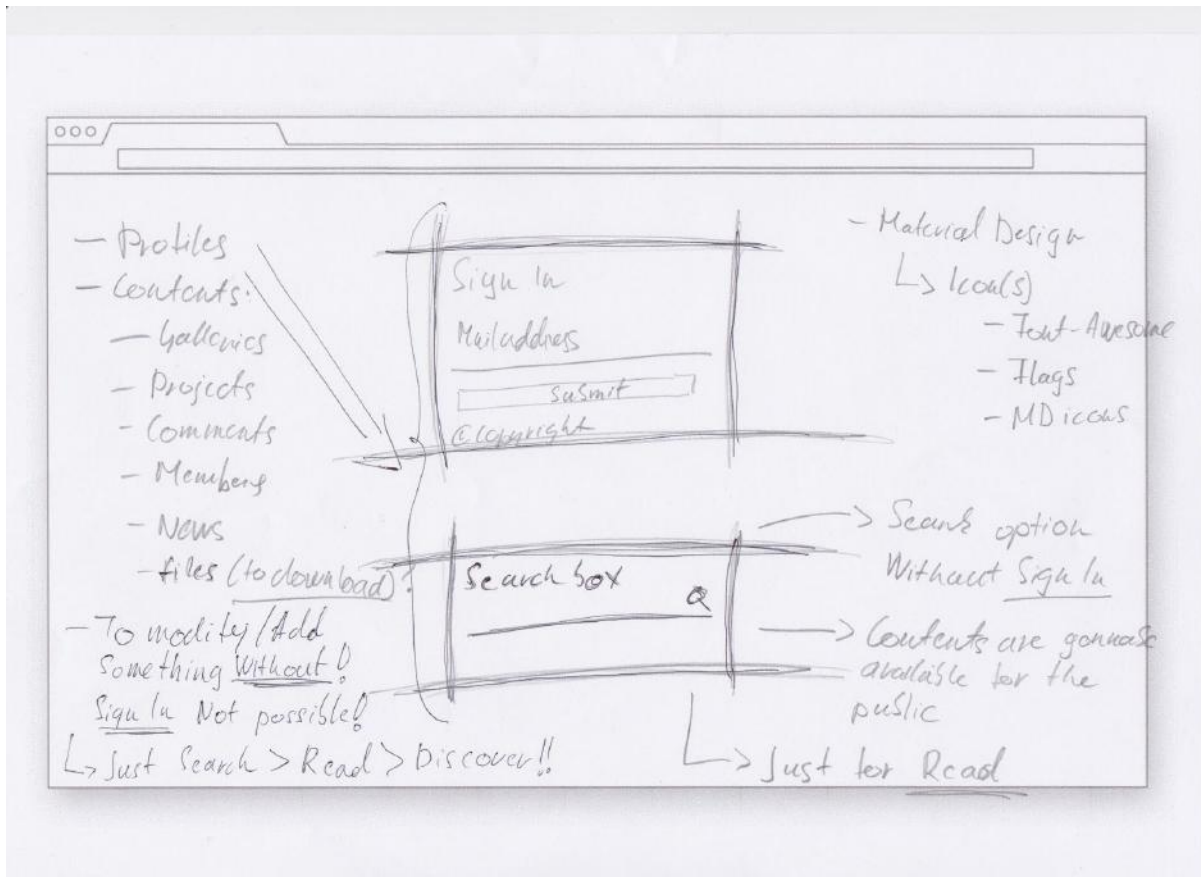 - Profiles
- Contents:
- Galleries
- Projects
- Comments
- Members
- News
- files (to download)?
- To modify/Add
something without!
Sign In Not possible!
↳ Just Search > Read > Discover!!
Sign In
Mailaddress
Submit
©Copyright
Search box
- Material Design
↳ Icon(s)
- Font-Awesome
- Flags
- MD icons
→ Search option
Without Sign In
→ Contents are gonna be
available for the
public
↳ Just for Read